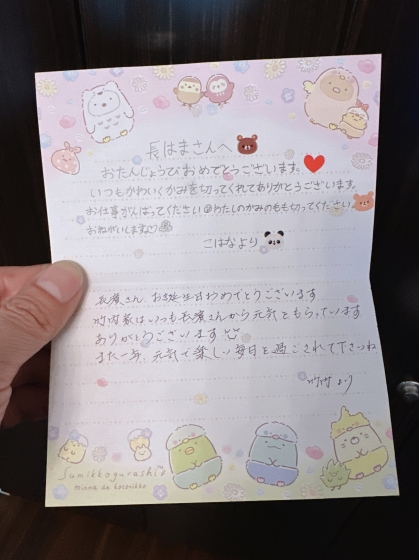 長はまさんへ
おたんじょうびおめでとうございます。
いつもかわいくかみを切ってくれてありがとうございます。
お仕事がんばってください@わたしのかみのもも切ってください
おねがいします♡
こはなより
長濱さん お誕生日おめでとうございます
竹内家はいつも長濱さんから元気をもらっています
ありがとうございます
また一年、元気で楽しい毎日を過ごされて下さいね
竹内より
Sumikkogurashi
minna de kocorikko